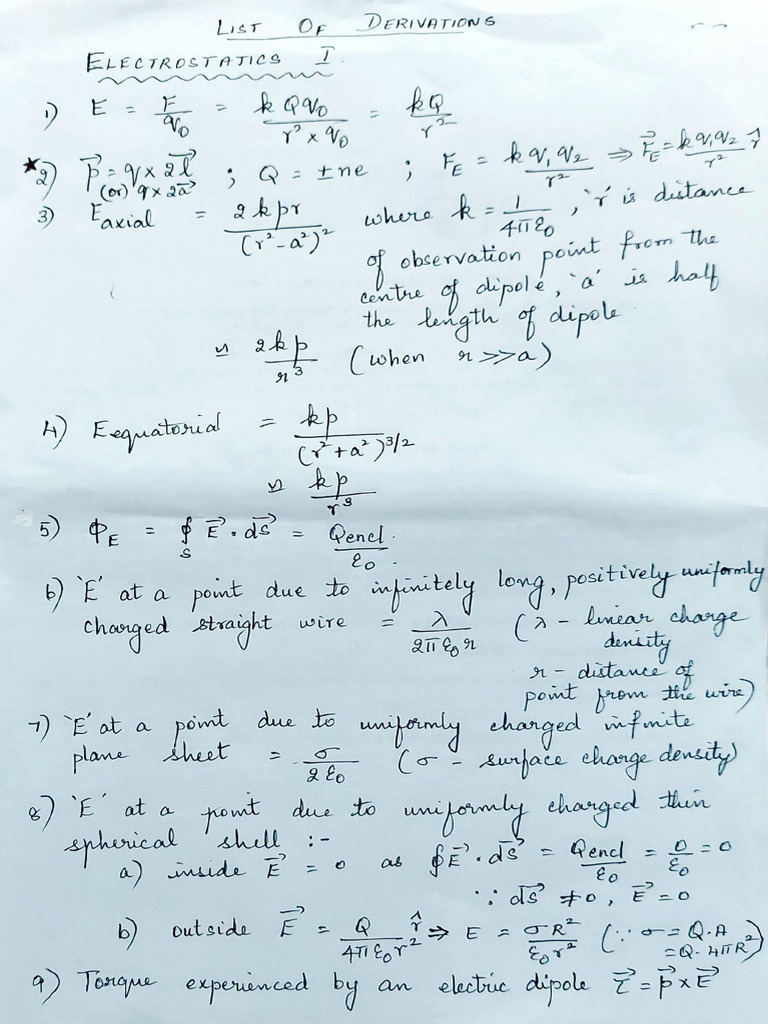 LIST OF DERIVATIONS
ELECTROSTATICS I
1) E = F/q₀ = kQq₀/(r² × q₀) = kQ/r²
★2) p⃗ = q × 2l⃗ ; Q = ±ne ; F_E = kq₁q₂/r² ⇒ F⃗_E = kq₁q₂/r² r̂
(or) q × 2a⃗
3) E axial = 2kpr/(r² − a²)² where k = 1/4πε₀, 'r' is distance
of observation point from the
centre of dipole, 'a' is half
the length of dipole
≈ 2kp/r³ (when r >> a)
4) Eequatorial = kp/(r² + a²)^3/2
≈ kp/r³
5) Φ_E = ∮_S E⃗ . ds⃗ = Qencl/ε₀.
6) 'E' at a point due to infinitely long, positively uniformly
charged straight wire = λ/2πε₀r (λ - linear charge
density
r - distance of
point from the wire)
7) 'E' at a point due to uniformly charged infinite
plane sheet = σ/2ε₀ (σ - surface charge density)
8) 'E' at a point due to uniformly charged thin
spherical shell :-
a) inside E⃗ = 0 as ∮E⃗ . ds⃗ = Qencl/ε₀ = 0/ε₀ = 0
∵ ds⃗ ≠ 0, E⃗ = 0
b) outside E⃗ = Q/4πε₀r² r̂ ⇒ E = σR²/ε₀r² (∵ σ = Q.A
= Q. 4πR²)
9) Torque experienced by an electric dipole τ⃗ = p⃗ × E⃗